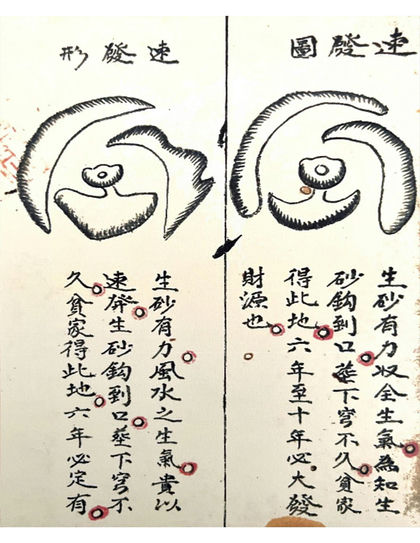 速發圖
生砂有力収全生氣為知生
砂鈎到口葬下穹不久貧家
得此地六年至十年必大發
財源也
速發形
生砂有力風水之生氣貴以
速發生砂鈎到口葬下穹不
久貧家得此地六年必定有